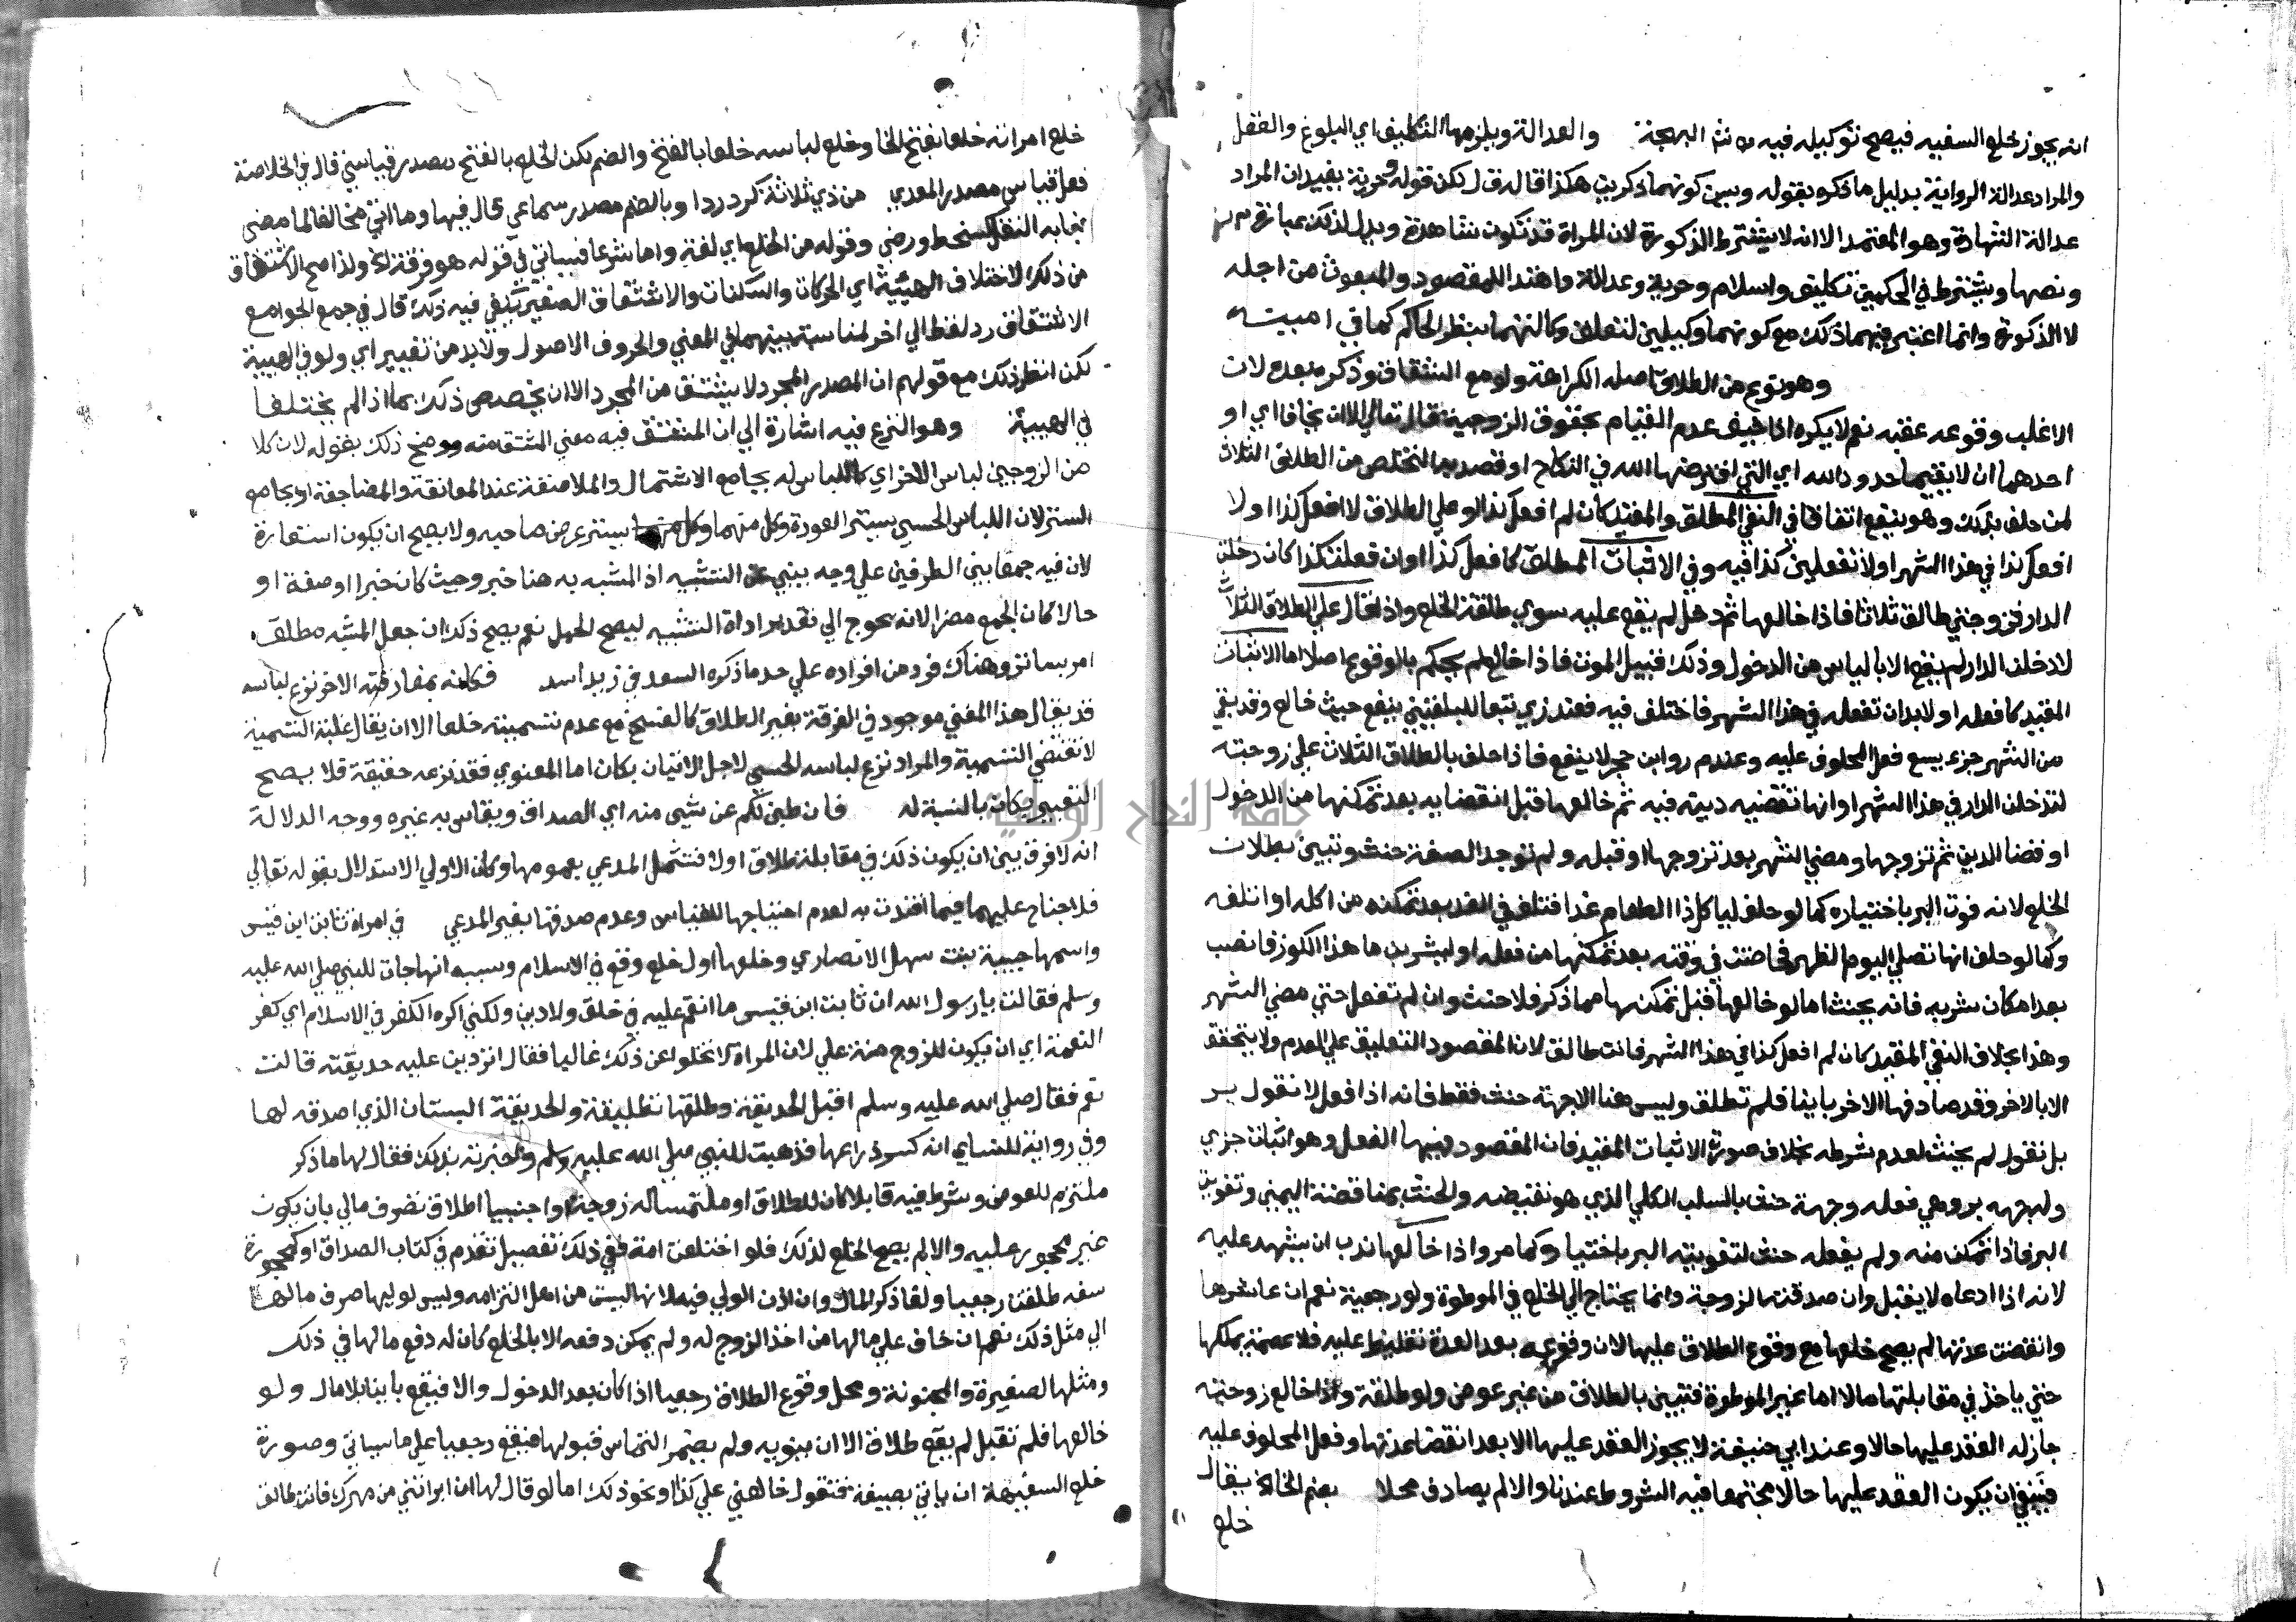 انه يجوز خلع السفيه فيصح توكيله فيه م ش البهجة والعدالة ويلزمها التكليف اي البلوغ والعقل
والمراد عدالة الرواية بدليل ما ذكره بقوله وسن كونهما ذكرين هكذا قاله ق ل لكن قوله وحرية يفيد ان المراد
عدالة الشهادة وهو المعتمد الا انه لا يشترط الذكورة لان المراة قد تكون شاهدة ويدل لذلك عبارة م ر
ونصها ويشترط في الحكمين تكليف واسلام وحرية وعدالة واهتدا للمقصود والمبعوث من اجله
لا الذكورة وانما اعتبر فيهما ذلك مع كونهما وكيلين لتعلق وكالتهما بنظر الحاكم كما في امينه
وهو نوع من الطلاق اصله الكراهة ولو مع الشقاق وذكره بعده لان
الاغلب وقوعه عقبه نعم لا يكره اذا خيف عدم القيام بحقوق الزوجية قال تعالى الا ان يخافا اي او
احدهما ان لا يقيما حدود الله اي التي افترضها الله في النكاح او قصد به التخلص من الطلاق الثلاث
لمن حلف بذلك وهو ينفع اتفاقا في النفي المطلق والمقيد كان لم افعل كذا او علي الطلاق لا افعل كذا او لا
افعل كذا في هذا الشهر او لا تفعلين كذا فيه وفي الاثبات المطلق كافعل كذا او ان فعلت كذا كان دخلت
الدار فزوجتي طالق ثلاثا فاذا خالعها ثم دخل لم يقع عليه سوى طلقة الخلع واذا قال علي الطلاق الثلاث
لادخلن الدار لم يقع الا بالياس من الدخول وذلك قبيل الموت فاذا خالع لم يحكم بالوقوع اصلا اما الاثبات
المقيد كافعله او لا بد ان تفعله في هذا الشهر فاختلف فيه فعند زي تبعا للبلقيني ينفع حيث خالع وقد بقي
من الشهر جزء يسع فعل المحلوف عليه وعند م ر وابن حجر لا ينفع فاذا حلف بالطلاق الثلاث على زوجته
لتدخلن الدار في هذا الشهر او انها تقضيه دينه فيه ثم خالعها قبل انقضايه بعد تمكنها من الدخول
او قضا الدين ثم تزوجها ومضى الشهر بعد تزوجها او قبله ولم توجد الصفة حنث وتبين بطلان
الخلع لانه فوت البر باختياره كما لو حلف لياكل ذا الطعام غدا فتلف في الغد بعد تمكنه من اكله او اتلفه
وكما لو حلف انها تصلي اليوم الظهر فحاضت في وقته بعد تمكنها من فعله او ليشربن ما هذا الكوز فانصب
بعد امكان شربه فانه يحنث اما لو خالعها قبل تمكنها مما ذكر فلا حنث وان لم تفعل حتى مضى الشهر
وهذا بخلاف النفي المقيد كان لم افعل كذا في هذا الشهر فانت طالق لان المقصود التعليق على العدم ولا يتحقق
الا بالاخر وقد صادفها الاخر باينا فلم تطلق وليس هنا الا جهة حنث فقط فانه اذا فعل لا نقول بر
بل نقول لم يحنث لعدم شرطه بخلاف صورة الاثبات المقيد فان المقصود فيها الفعل وهو اثبات جزي
وله جهة بر وهي فعله وجهة حنث بالسلب الكلي الذي هو نقيضه والحنث بمناقضة اليمين وتفويت
البر فاذا تمكن منه ولم يفعله حنث لتفويته البر باختياره كما مر واذا خالعها ندب ان يشهد عليه
لانه اذا ادعاه لا يقبل وان صدقته الزوجة وانما يحتاج الى الخلع في الموطوة ولو رجعية نعم ان عاشرها
وانقضت عدتها لم يصح خلعها مع وقوع الطلاق عليها لان وقوعه بعد العدة تغليظ عليه فلا عصمة يملكها
حتى ياخذ في مقابلتها مالا اما غير الموطوة فتبين بالطلاق من غير عوض ولو طلقة واذا خالع زوجته
جاز له العقد عليها حالا وعند ابي حنيفة لا يجوز العقد عليها الا بعد انقضا عدتها وفعل المحلوف عليه
فينبغي ان يكون العقد عليها حالا مجتمعا فيه الشروط عندنا والا لم يصادف محلا بضم الخا الخ يقال
خلع
خلع امراته خلعا بفتح الخا وخلع لباسه خلعا بالفتح والضم لكن الخلع بالفتح مصدر قياسي قال في الخلاصة
فعل قياس مصدر المعدي من ذي ثلاثة كرد ردا وبالضم مصدر سماعي قال فيها وما اتى مخالفا لما مضى
فبابه النقل كسخط ورضى وقوله من الخلع اي لغة واما شرعا فسياتي في قوله هو فرقة الخ ولذا صح الاشتقاق
من ذلك لاختلاف الهيئة اي الحركات والسكنات والاشتقاق الصغير يكفي فيه ذلك قال في جمع الجوامع
الاشتقاق رد لفظ الى اخر لمناسبة بينهما في المعنى والحروف الاصول ولا بد من تغيير اي ولو في الهيئة
لكن انظر ذلك مع قولهم ان المصدر المجرد لا يشتق من المجرد الا ان يخصص ذلك بما اذا لم يختلفا
في الهيئة وهو النزع فيه اشارة الى ان المشتق فيه معنى المشتق منه ووضح ذلك بقوله لان كلا
من الزوجين لباس الاخر اي كاللباس له بجامع الاشتمال والملاصقة عند المعانقة والمضاجعة او بجامع
الستر لان اللباس الحسي يستر العورة وكل منهما يستر عرض صاحبه ولا يصح ان يكون استعارة
لان فيه جمعا بين الطرفين على وجه ينبي عن التشبيه اذ المشبه به هنا خبر وحيث كان خبرا او صفة او
حالا كان الجمع مضرا لانه يحوج الى تقدير اداة التشبيه ليصح الحمل نعم يصح ذلك ان جعل المشبه مطلق
امر ساتر وهناك فرد من افراده على حد ما ذكره السعد في زيد اسد فكانه بمفارقته الاخر نزع لباسه
قد يقال هذا المعنى موجود في الفرقة بغير الطلاق كالفسخ مع عدم تسميته خلعا الا ان يقال علة التسمية
لا تقتضي التسمية والمراد نزع لباسه الحسي لاجل الاتيان بكان اما المعنوي فقد نزعه حقيقة فلا يصح
التعبير بكان بالنسبة له فان طبن لكم عن شيى منه اي الصداق ويقاس به غيره ووجه الدلالة
انه لا فرق بين ان يكون ذلك في مقابلة طلاق او لا فتشمل المدعي بعمومها وكان الاولى الاستدلال بقوله تعالى
فلا جناح عليهما فيما افتدت به لعدم احتياجها للقياس وعدم صدقها بغير المدعي في امراة ثابت ابن قيس
واسمها حبيبة بنت سهل الانصاري وخلعها اول خلع وقع في الاسلام وسببه انها جات للنبي صلى الله عليه
وسلم فقالت يا رسول الله ان ثابت ابن قيس ما انقم عليه في خلق ولا دين ولكني اكره الكفر في الاسلام اي كفر
النعمة اي ان يكون للزوج منة علي لان المراة لا تخلوا عن ذلك غالبا فقال اتردين عليه حديقته قالت
نعم فقال صلى الله عليه وسلم اقبل الحديقة وطلقها تطليقة والحديقة البستان الذي اصدقه لها
وفي رواية للنساي انه كسر ذراعها فذهبت للنبي صلى الله عليه وسلم واخبرته بذلك فقال لها ما ذكر
ملتزم للعوض وشرط فيه قابلا كان للطلاق او ملتمسا له زوجة او اجنبيا اطلاق تصرف مالي بان يكون
غير محجور عليه والا لم يصح الخلع لذلك فلو اختلعت امة ففي ذلك تفصيل تقدم في كتاب الصداق او محجورة
سفه طلقت رجعيا ولغا ذكر المال وان اذن الولي فيه لانها ليست من اهل التزامه وليس لوليها صرف مالها
الى مثل ذلك نعم ان خاف على مالها من اخذ الزوج له ولم يمكن دفعه الا بالخلع كان له دفع مالها في ذلك
ومثلها الصغيرة والمجنونة ومحل وقوع الطلاق رجعيا اذا كان بعد الدخول والا فيقع باينا بلا مال ولو
خالعها فلم تقبل لم يقع طلاق الا ان ينويه ولم يضمر التماس قبولها فيقع رجعيا على ما سياتي وصورة
خلع السفيهة ان ياتي بصيغة فتقول خالعني على كذا او نحو ذلك اما لو قال لها ان ابراتني من مهرك فانت طالق
جامعة النجاح الوطنية